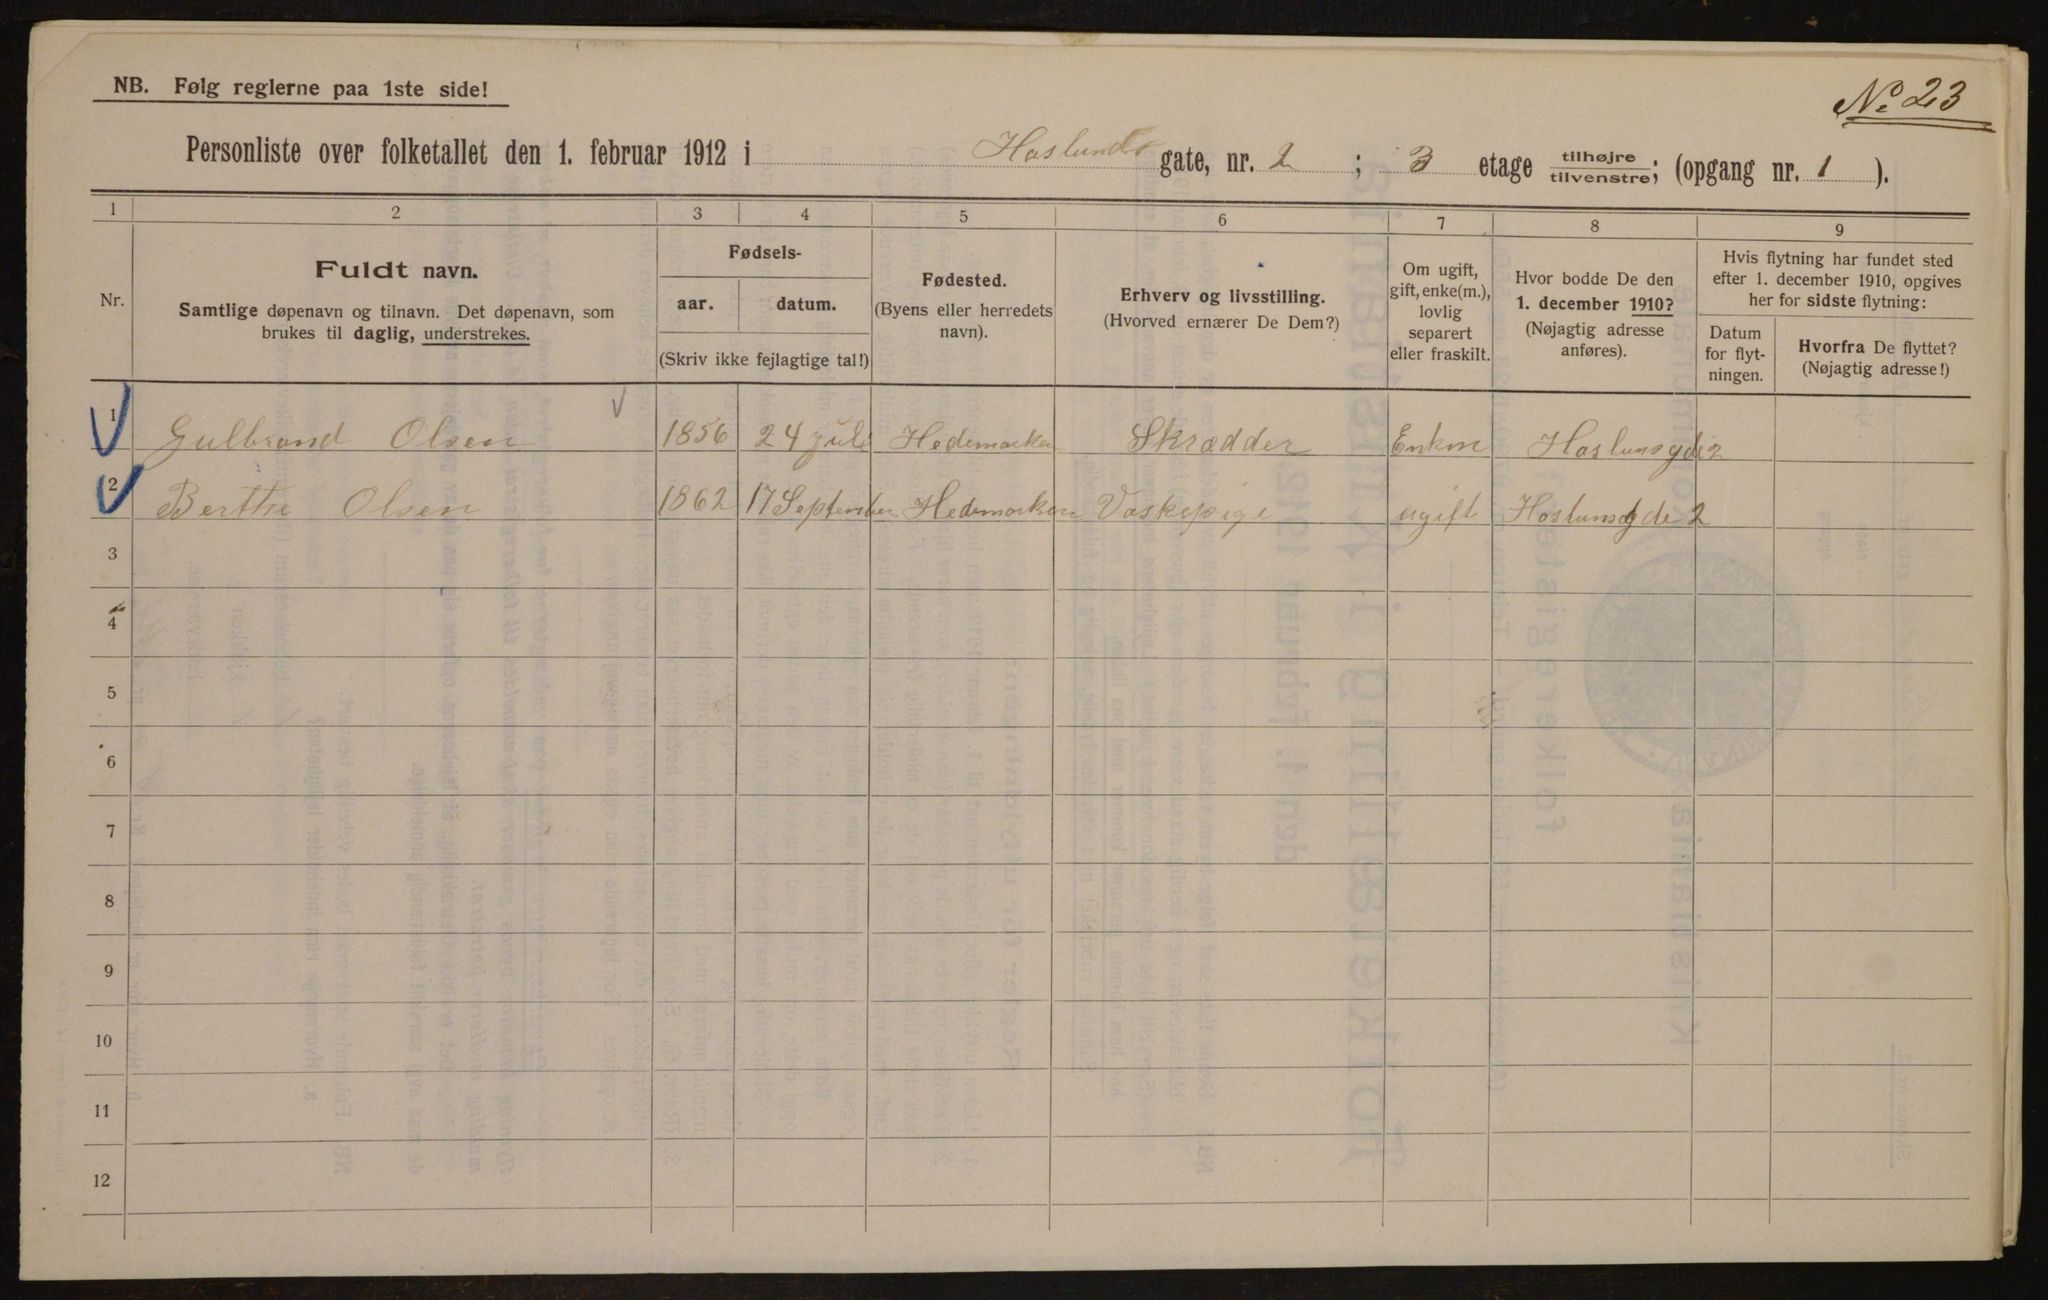 NB. Følg reglerne paa 1ste side!
No. 23
Personliste over folketallet den 1. februar 1912 i Haslunds gate, nr. 2 ; 3 etage tilhøjre/tilvenstre; (opgang nr. 1 ).
1 2 3 4 5 6 7 8 9
Nr.
Fuldt navn.
Samtlige døpenavn og tilnavn. Det døpenavn, som
brukes til daglig, understrekes.
Fødsels-
aar. datum.
(Skriv ikke fejlagtige tal!)
Fødested.
(Byens eller herredets
navn).
Erhverv og livsstilling.
(Hvorved ernærer De Dem?)
Om ugift,
gift, enke(m.),
lovlig
separert
eller fraskilt.
Hvor bodde De den
1. december 1910?
(Nøjagtig adresse
anføres).
Hvis flytning har fundet sted
efter 1. december 1910, opgives
her for sidste flytning:
Datum
for flyt-
ningen.
Hvorfra De flyttet?
(Nøjagtig adresse!)
1 Gulbrand Olsen 1856 24 juli Hedemarken Skrædder Enkm Haslunsgde 2
2 Berthe Olsen 1862 17 September Hedemarken Vaskepige ugift Haslunsgde 2
3
4
5
6
7
8
9
10
11
12